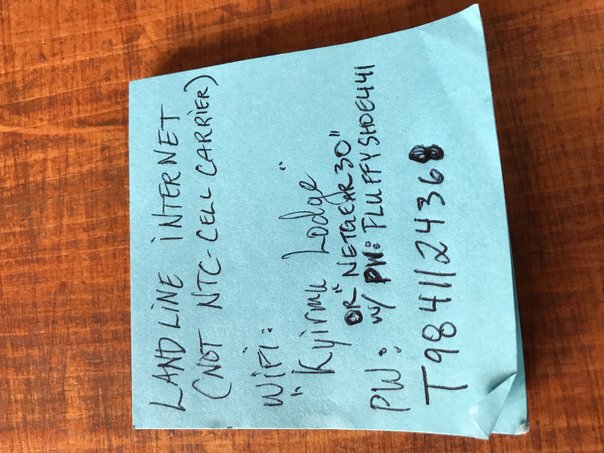 LANDLINE INTERNET
(NOT NTC-CELL CARRIER)
WiFi:
"Kyirmu Lodge"
OR "NETGEAR30"
w/ PW: FLUFFYSHOE441
PW:
T9841124368